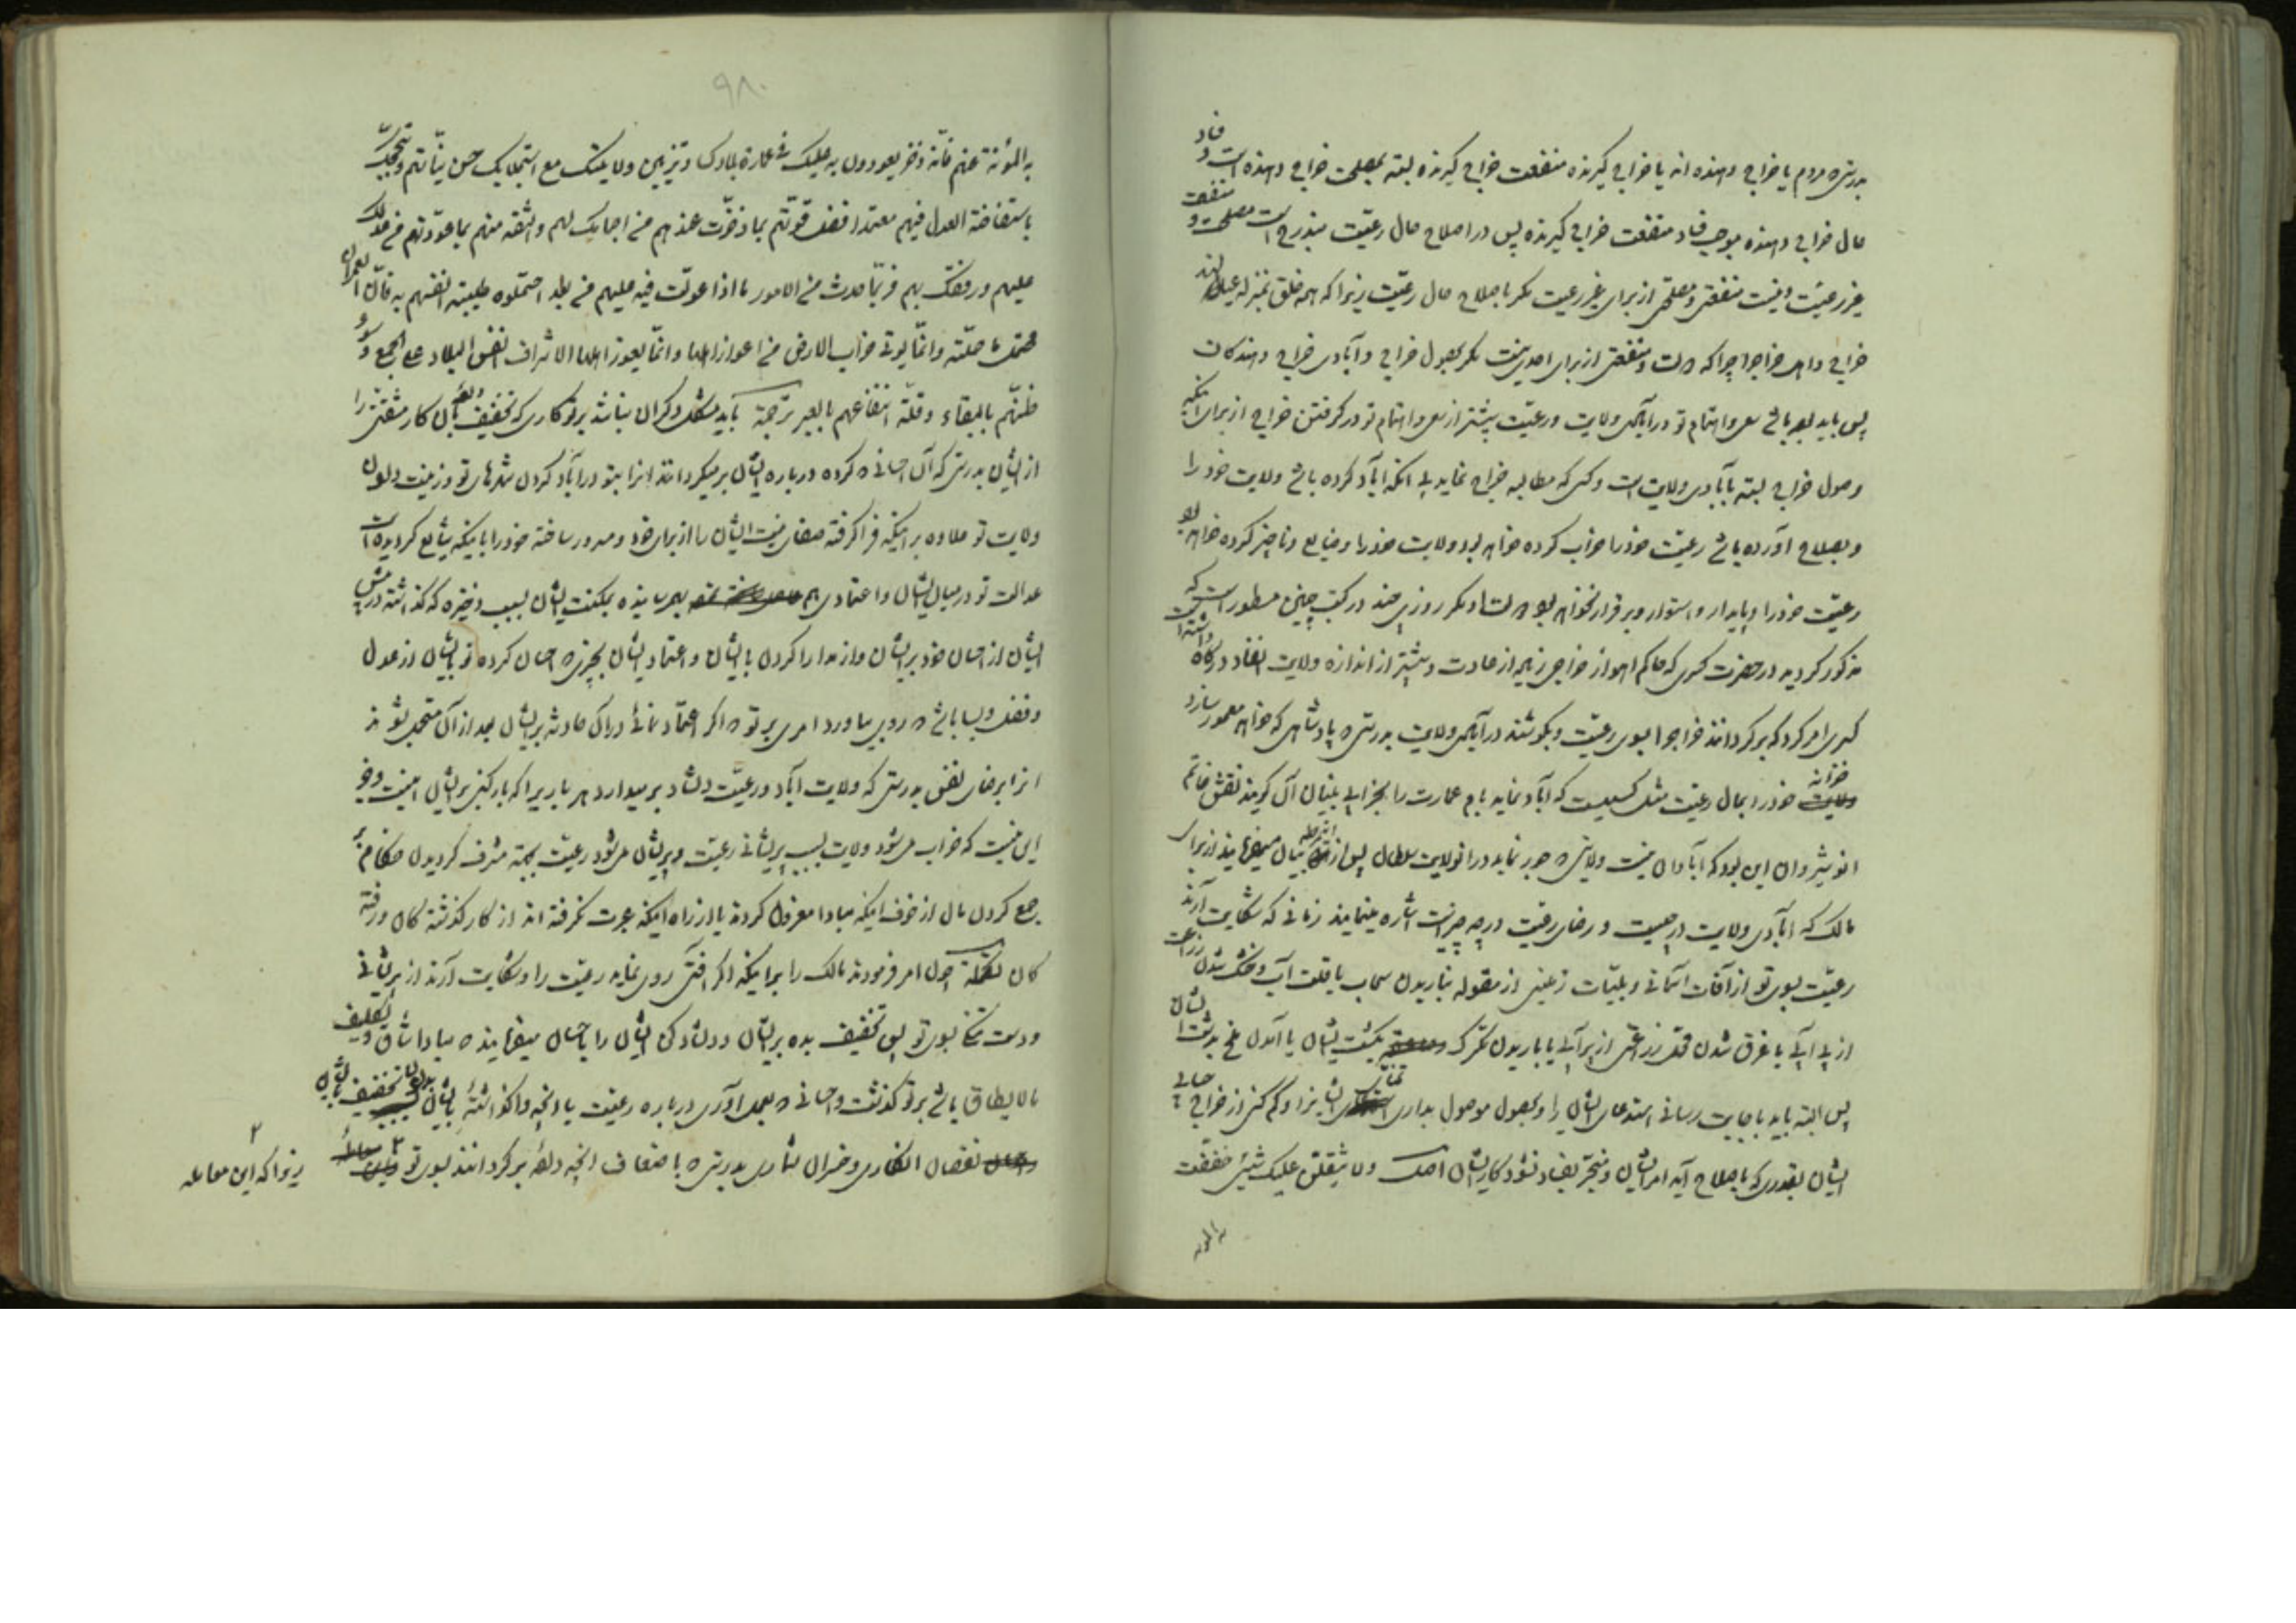 بدرستی که مردم یا خراج دهنده اند یا خراج گیرنده منفعت خراج گیرنده بسته بمصلحت خراج دهنده است و فساد
حال خراج دهنده موجب فساد منفعت خراج گیرنده پس در اصلاح حال رعیت مندرج است مصلحت و منفعت
غیر رعیت و نیست منفعتی و مصلحتی از برای غیر رعیت مگر باصلاح حال رعیت زیرا که همه خلق بمنزله عیال
خراج و اهل خراج چرا که منفعتی از برای احدی نیست مگر بحصول خراج و آبادی خراج دهندگان
پس باید بوده باشد سعی و اهتمام تو در آبادی ولایت و رعیت بیشتر از سعی و اهتمام تو در گرفتن خراج از برای اینکه
وصول خراج بسته بآبادی ولایت است و کسی که مطالبه خراج نماید بی آنکه آباد کرده باشد ولایت خود را
و بصلاح آورده باشد رعیت خود را خراب کرده خواهد بود ولایت خود را و ضایع و ناچیز کرده خواهد بود
رعیت خود را و پایدار و استوار و برقرار نخواهد بود مگر روزی چند در کتب چنین مسطور است که
مذکور گردید در حضرت کسری که حاکم اهواز خراجی زیاد از عادت و بیشتر از اندازه ولایت انفاد درگاه داشته است
کسری امر کرد که برگردانند خراج را بسوی رعیت و بکوشند در آبادی ولایت بدرستی که پادشاهی که خواهد معمور سازد
خزانه خود را بمال رعیت مثل کسیست که آباد نماید بام عمارت را بخرابی بنیان آن گویند نقش خاتم
انوشیروان این بود که آبادان نیست ولایتی که جور نماید در او والی سلطان پس از برای
مالک که آبادی ولایت در چیست و رضای رعیت در چه چیز است اشاره مینمایند زمانی که شکایت آرند
رعیت بسوی تو از آفات آسمانی و بلیات زمینی از مقوله نباریدن سحاب یا قلت آب و خشک شدن زراعت
از بی آبی یا غرق شدن محل زراعتی از پر آبی یا باریدن تگرگ بکشت ایشان یا آمدن ملخ بدشت ایشان
پس البته باید باجابت رسانی استدعای ایشان را و بحصول موصول بداری تمنای ایشان را و کم کنی از خراج
ایشان بقدری که باصلاح آید امر ایشان و منجر بفساد نشود کار ایشان اصل ولا یثقلن علیک شیئ خففت
به المؤنة
۹۸۰
به المؤنة عنهم فانه ذخر یعودون به علیک فی عمارة بلادک و تزیین ولایتک مع استجلابک حسن نیاتهم و تبجحک
باستفاضة العدل فیهم معتمدا فضل قوتهم بما ذخرت عندهم من اجمامک لهم والثقة منهم بما عودتهم من عدلک
علیهم و رفقک بهم فربما حدث من الامور ما اذا عولت فیه علیهم من بعد احتملوه طیبة انفسهم به فان العمران
محتمل ما حملته وانما یؤتی خراب الارض من اعواز اهلها وانما یعوز اهلها لاشراف انفس الولاة علی الجمع و سوء
ظنهم بالبقاء وقلة انتفاعهم بالعبر ترجمة باید مشکل و گران نباشد بر تو کاری که تخفیف داده بآن کار مشقتی را
از ایشان بدرستی که آن احسانی که کرده درباره ایشان برمیگردانند انرا بتو در آباد کردن شهرهای تو و زینت دادن
ولایت تو علاوه بر اینکه فرا گرفته ثنای نیت ایشان را از برای خود و مسرور ساخته خود را باینکه شایع گردیده است
عدالت تو در میان ایشان و اعتمادی هم بهم رسانیده بمکنت ایشان بسبب ذخیره که گذاشته در پیش
ایشان از احسان خود بر ایشان و از مدارا کردن با ایشان و اعتماد ایشان بچیزی که احسان کرده تو بایشان از عدل
و فضل و بسا باشد که روی بیاورد امری بر تو که اگر اعتماد نمائی در آن حادثه بر ایشان بعد از آن متحمل شوند
انرا برضای نفس بدرستی که ولایت آباد و رعیت دلشاد برمیدارد هر باری را که بار کنی بر ایشان اینست و جز
این نیست که خراب میشود ولایت بسبب پریشانی رعیت و پریشان میشود رعیت بجهة مشرف گردیدن حکام
بجمع کردن مال از خوف اینکه مبادا معزول گردند یا از راه اینکه عبرت نگرفته اند از کار گذشته گان و رفته
گان تکملة چون امر فرمودند مالک را بر اینکه اگر آفتی روی نماید رعیت را و شکایت آرند از پریشانی
و دست تنگی بسوی تو پس تخفیف بده بر ایشان و دلشاد کن ایشان را باحسان میفرمایند که مبادا شاق و تکلیف
مالایطاق باشد بر تو گذشت و احسانی که بعمل آوری درباره رعیت یا وانچه واگذاشته بایشان تخفیف
نقصان انگاری و خسران شماری بدرستی که باضعاف انچه داده برگردانند بسوی تو
زیرا که این معامله